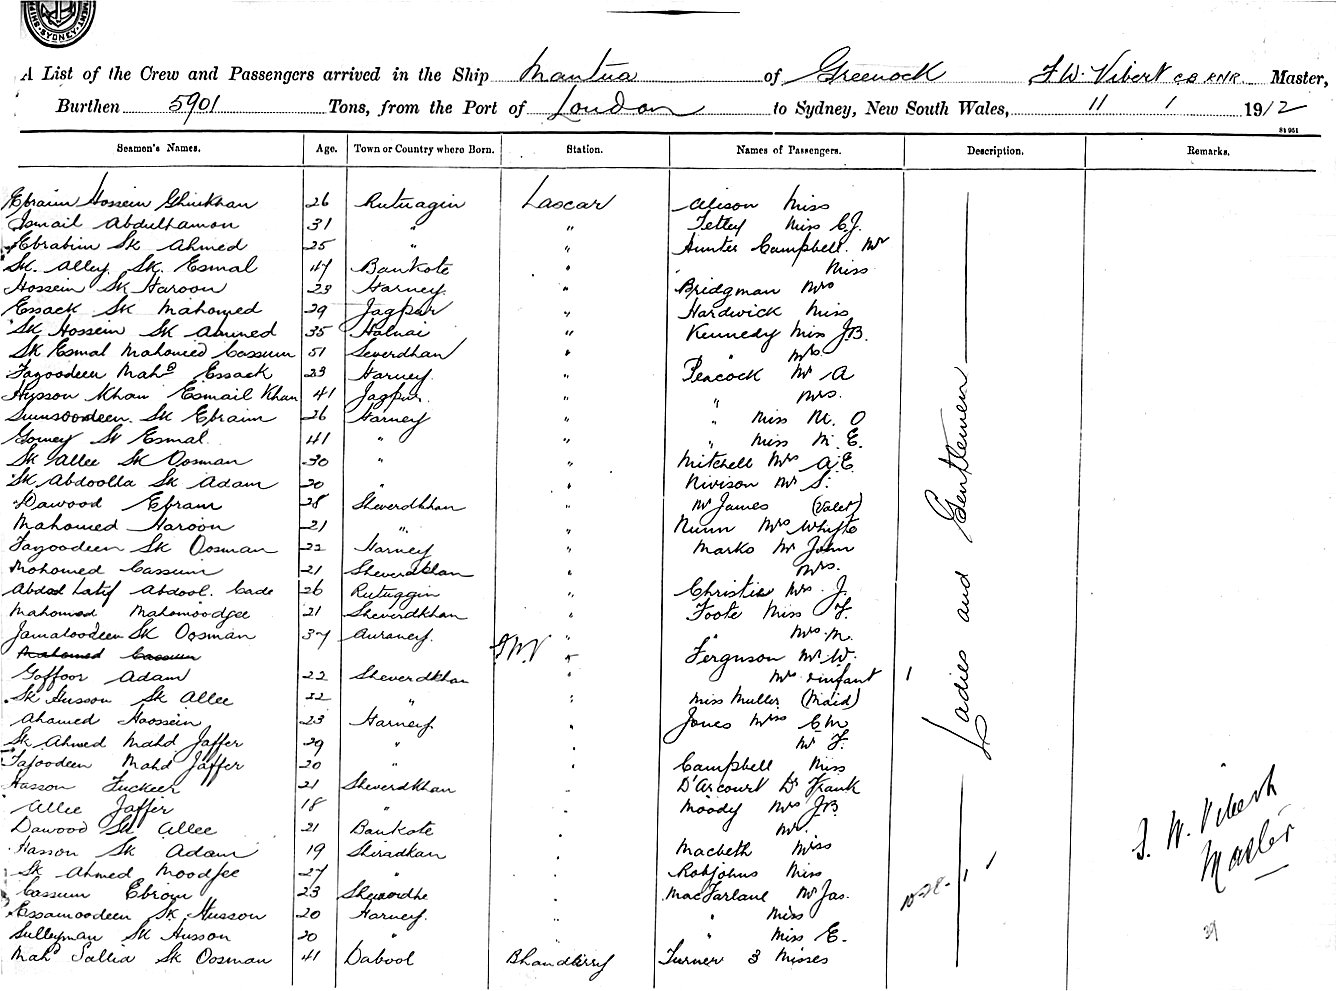 MENT. SYDNEY. SHIP
A List of the Crew and Passengers arrived in the Ship Mantua of Greenock F. W. Vibert C.B. R.N.R. Master,
Burthen 5901 Tons, from the Port of London to Sydney, New South Wales, 11 1 1912
Seamen's Names. Age. Town or Country where Born. Station. Names of Passengers. Description. Remarks.
Ebraim Hossein Ghinkhan 26 Rutnagin Lascar Alison Miss
Ismail Abdulhamon 31 " " Tetley Miss C.J.
Ebrahim Sk Ahmed 25 " " Hunter Campbell. Mr
Sk. Alley Sk. Esmal 47 Bankote " Miss
Hossein Sk Haroon 23 Harney " Bridgman Mrs
Essack Sk Mahomed 29 Jagpur " Hardwick Miss
Sk Hossein Sk Ahmed 35 Halnai " Kennedy Miss J.B.
Sk Esmal Mahomed Cassum 51 Severdhan " " Mrs.
Fagoodeen Mahd Essack 23 Harney " Peacock Mr A
Hysson Khan Esmail Khan 41 Jagpur. " " Mrs.
Sumsoodeen Sk Ebraim 26 Harney " " Miss M. O
Gomey Sk Esmal 41 " " " Miss M. E.
Sk Allee Sk Oosman 30 " " Mitchell Mrs A.E.
Sk Abdoolla Sk Adam 20 " " Nivison Mr S.
Dawood Ebram 28 Sheverdkhan " Mr James (Valet)
Mahomed Haroon 21 " " Nunn Mrs Whyte
Fagoodeen Sk Oosman 22 Harney " Marks Mr John
Mohomed Cassum 21 Sheverdkhan " Mrs.
Abdool Latif Abdool. Cade 26 Rutuggin " Christie Mrs J.
Mahomed Mahomoodgee 21 Sheverdkhan " Foote Miss F.
Jamaloodeen Sk Oosman 37 Auraney. " " Mrs M.
Mahomed Cassum F.W.V " Ferguson Mr W.
Goffoor Adam 22 Sheverdkhan " Mrs & infant 1
Sk Husson Sk Allee 22 " " Miss Muller (Maid)
Ahamed Hoossein 23 Harney. " Jones Miss C.M.
Sk Ahmed Mahd Jaffer 29 " " Mr F.
Fajoodeen Mahd Jaffer 20 " " Campbell Miss
Hasson Fuckeer 21 Sheverdkhan " D'Arcourt Dr Frank
Allee Jaffer 18 " " Moody Mrs J.B.
Dawood Sk Allee 21 Bankote " Mr.
Hasson Sk Adam 19 Shiradkan " Macbeth Miss
Sk Ahmed Moodjee 27 " " Robjohns Miss
Cassum Ebram 23 Shewordhe " MacFarlane Mr Jas.
Essamoodeen Sk Husson 20 Harney. " " Miss
Sulleyman Sk Husson 20 " " " Miss E.
Mahd Sallia Sk Oosman 41 Dabool Bhandarry Turner 3 Misses
Ladies and Gentlemen
F. W. Vibert
Master
39